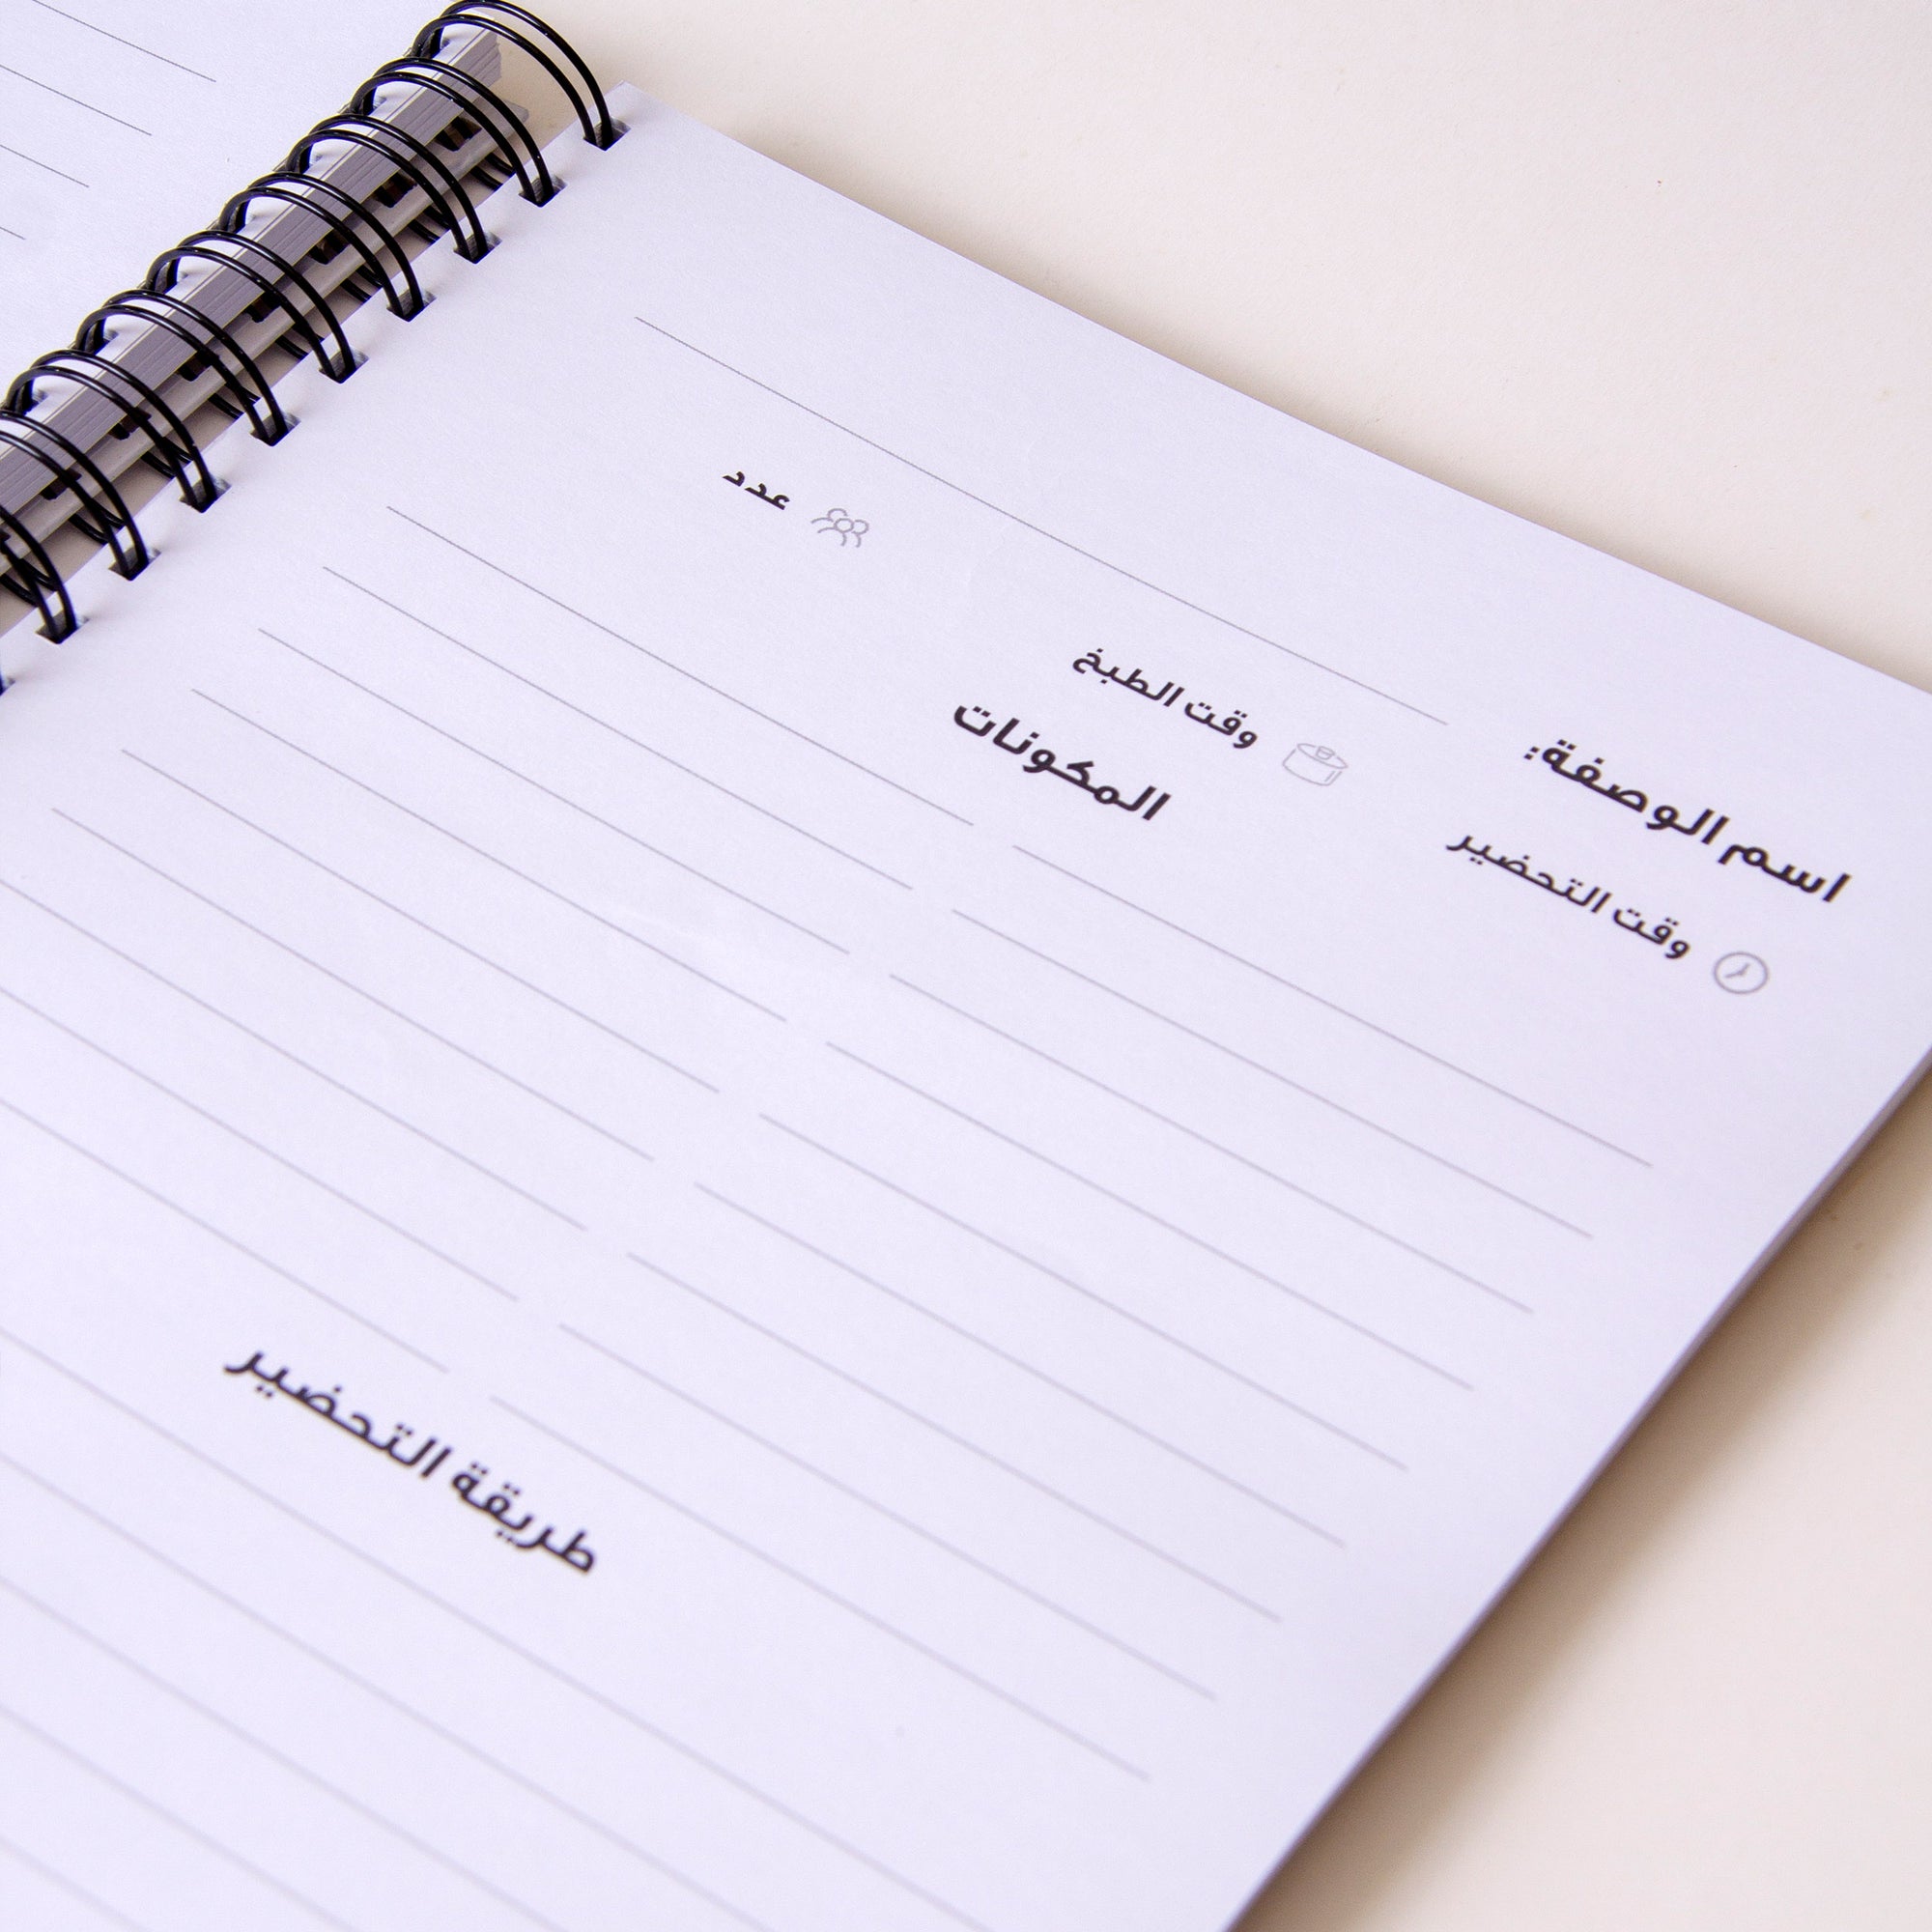 اسم الوصفة:
وقت التحضير وقت الطبخ عدد
المكونات
طريقة التحضير